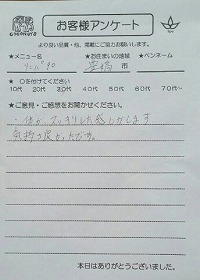 お客様アンケート
より良い品質・他、掲載にご協力お願いします。
★メニュー名 ★お住まいの地域 ★ペンネーム
豊橋 市
★ ○を付けてください
10代 20代 30代 40代 50代 60代 70代~
★ご意見・ご感想をお聞かせください。
体が スッキリした感じがします
気持ち良かったです。
本日はありがとうございました。